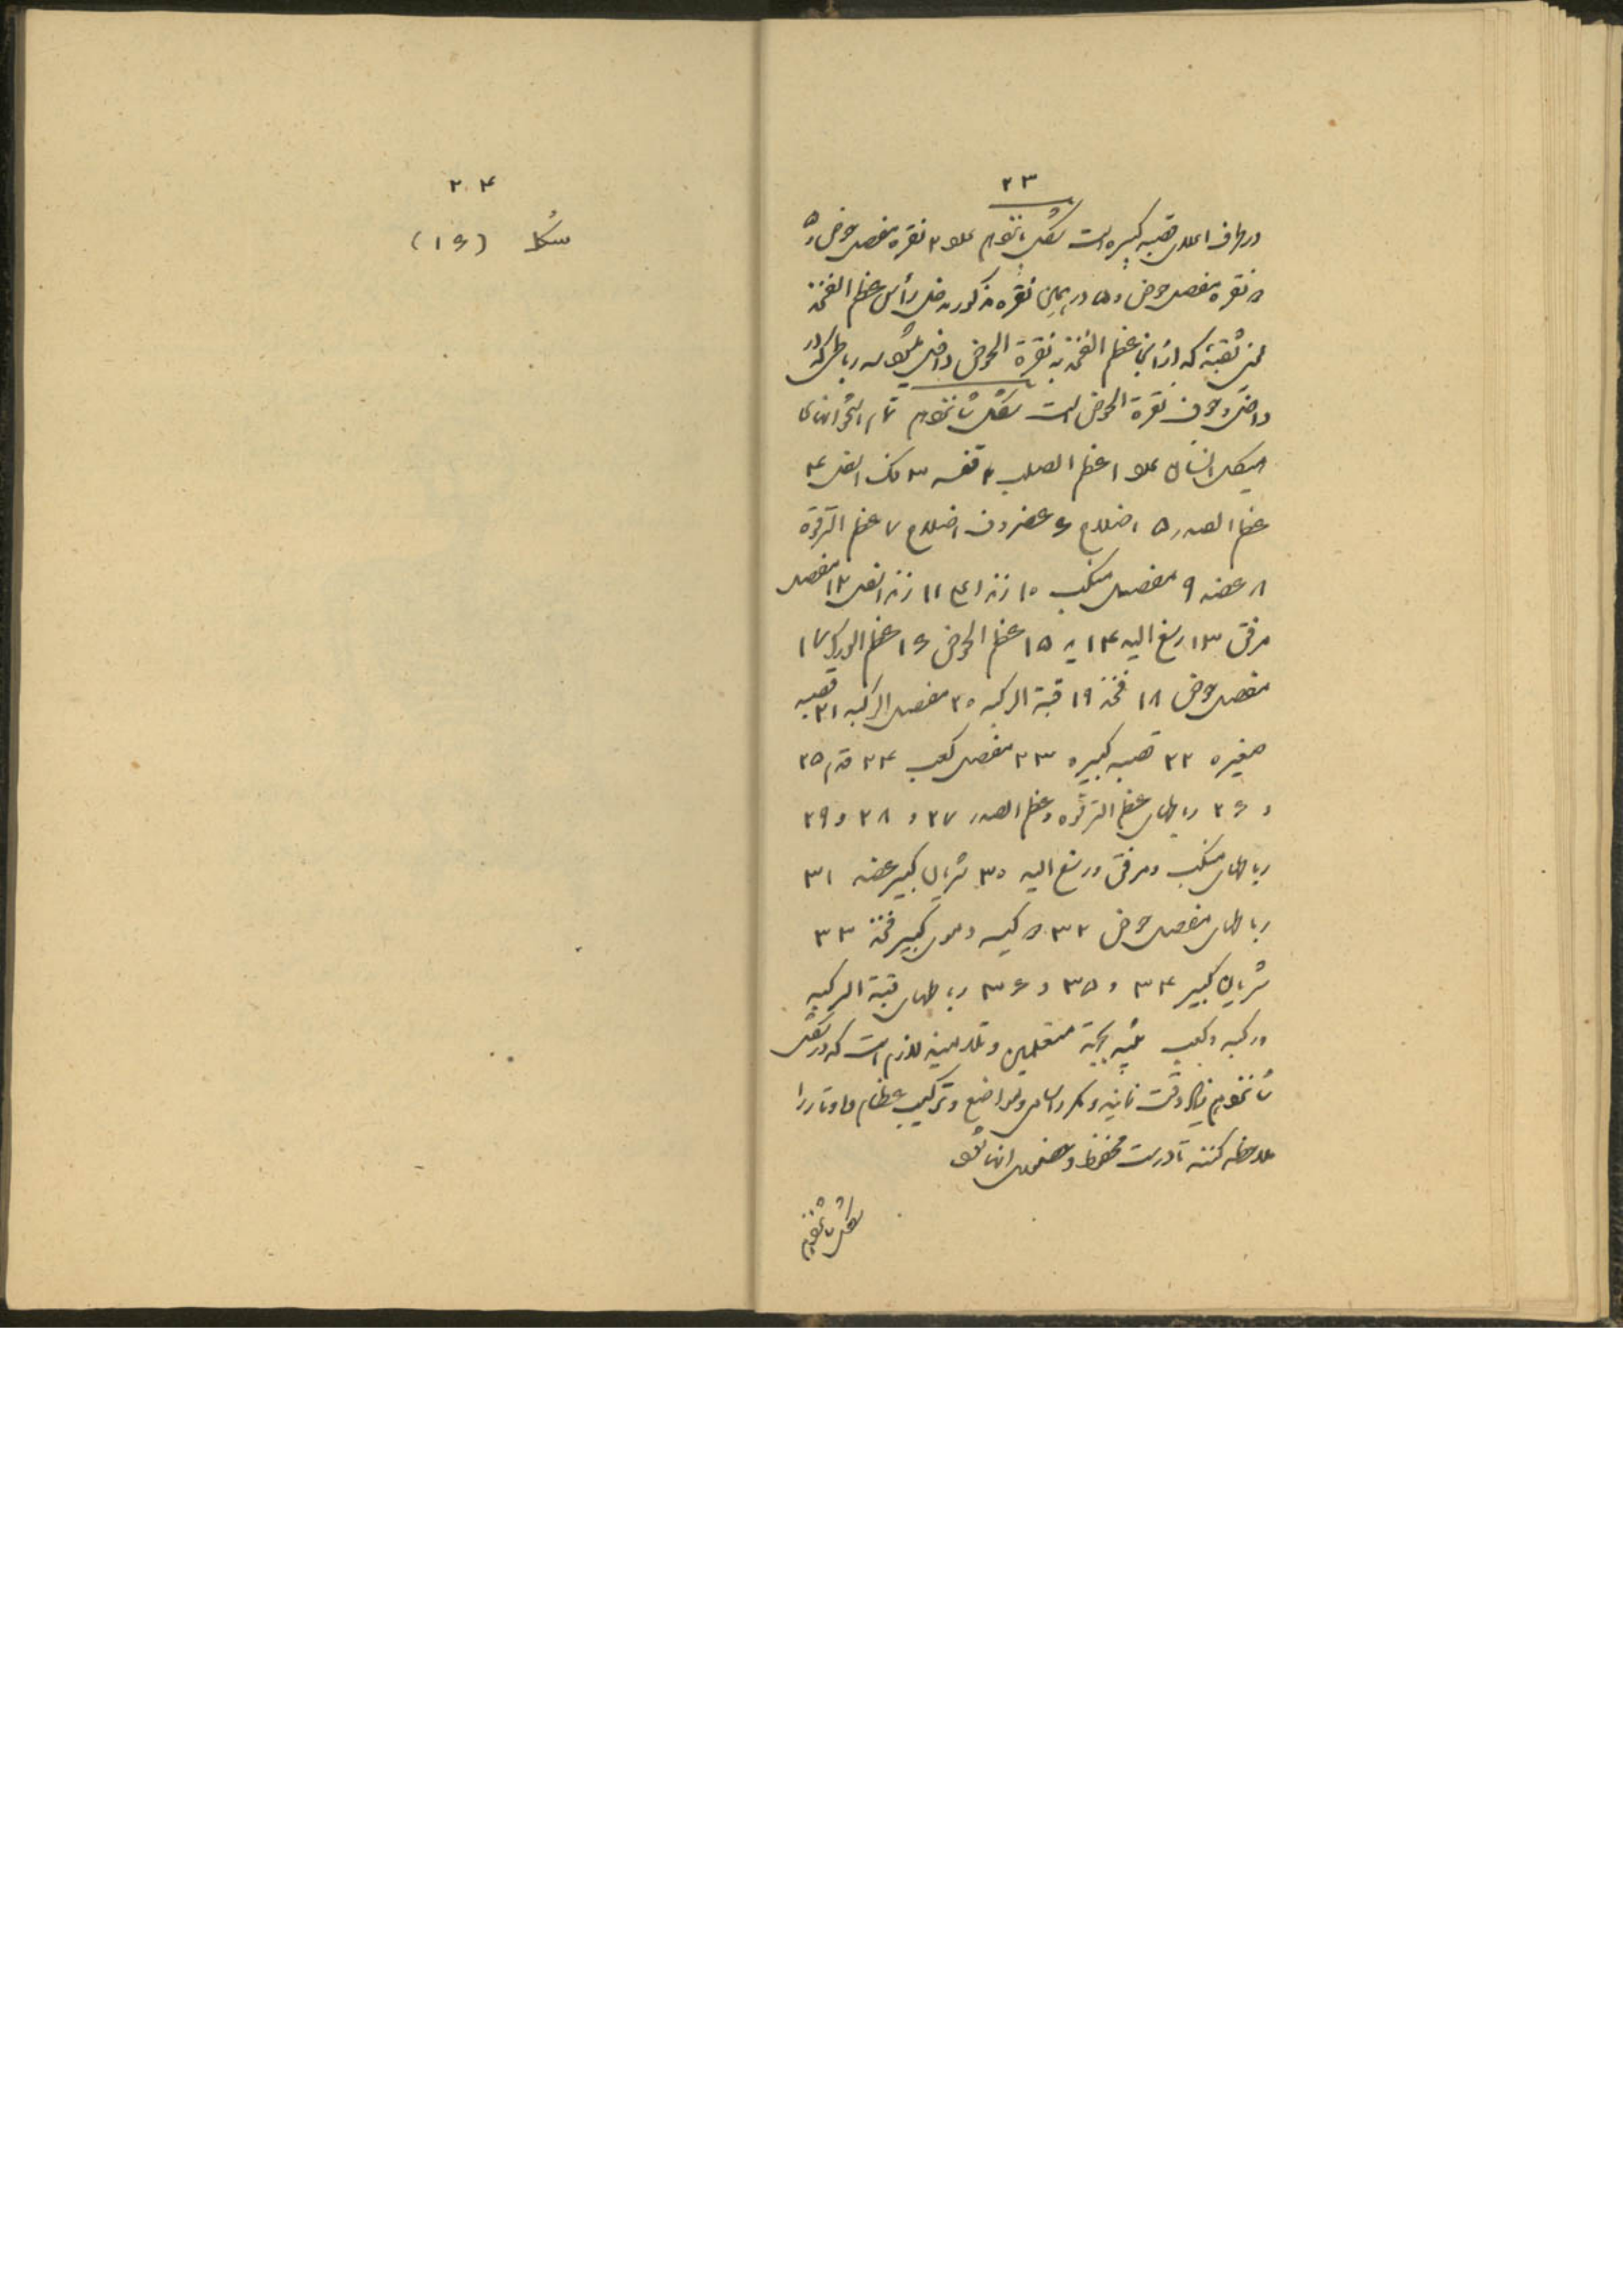 ۲۳
در طرف اعلای قصبه کبیره است شکل پانزدهم علاوه ۲ نقره مفصل حوض
نقره مفصل حوض و ۵ در همین نقره مذکور داخل رأس عظم الفخذ
ثقبه که از انجا عظم الفخذ به نقرة الحوض داخل میشود رباطی که در
داخل و جوف نقرة الحوض است شکل شانزدهم تمام استخوانهای
هیکل انسان علاوه ۱ عظم الصلب ۲ قفسه ۳ فک اسفل ۴
عظم الصدر ۵ اضلاع ۶ غضروف اضلاع ۷ عظم الترقوة
۸ عضد ۹ مفصل منکب ۱۰ زند اعلی ۱۱ زند اسفل ۱۲ مفصل
مرفق ۱۳ رسغ الید ۱۴ ید ۱۵ عظم الحوض ۱۶ عظم الورک ۱۷
مفصل حوض ۱۸ فخذ ۱۹ قبة الرکبه ۲۰ مفصل الرکبه ۲۱ قصبه
صغیره ۲۲ قصبه کبیره ۲۳ مفصل کعب ۲۴ قدم ۲۵
و ۲۶ رباطهای عظم الترقوه و عظم الصدر ۲۷ و ۲۸ و ۲۹
رباطهای منکب و مرفق و رسغ الید ۳۰ شریان کبیر عضد ۳۱
رباطهای مفصل حوض ۳۲ کیسه دموی کبیر فخذ ۳۳
شریان کبیر ۳۴ و ۳۵ و ۳۶ رباطهای قبة الرکبه
و رکبه و کعب تنبیه بجهة متعلمین و تلامیذ لازم است که در شکل
شانزدهم زیاد دقت نمایند و مکرر اسامی و مواضع و ترکیب عظام و اوتار را
ملاحظه کنند تا درست محفوظ و مضبوط انها شود
شکل شانزدهم
۲۴
شکل (۱۶)